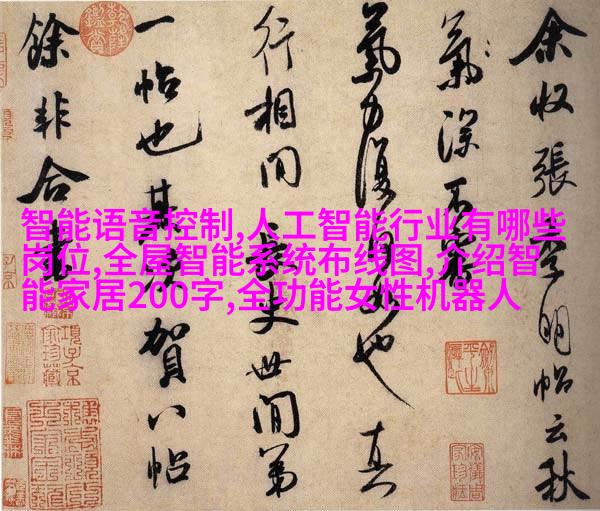 余收張季明帖云秋
氣深不審
氣力復何如也真
行相間長史世間第
一帖也其次賀八帖
餘非合書
智能语音控制,人工智能行业有哪些
岗位,全屋智能系统布线图,介绍智
能家居200字,全功能女性机器人